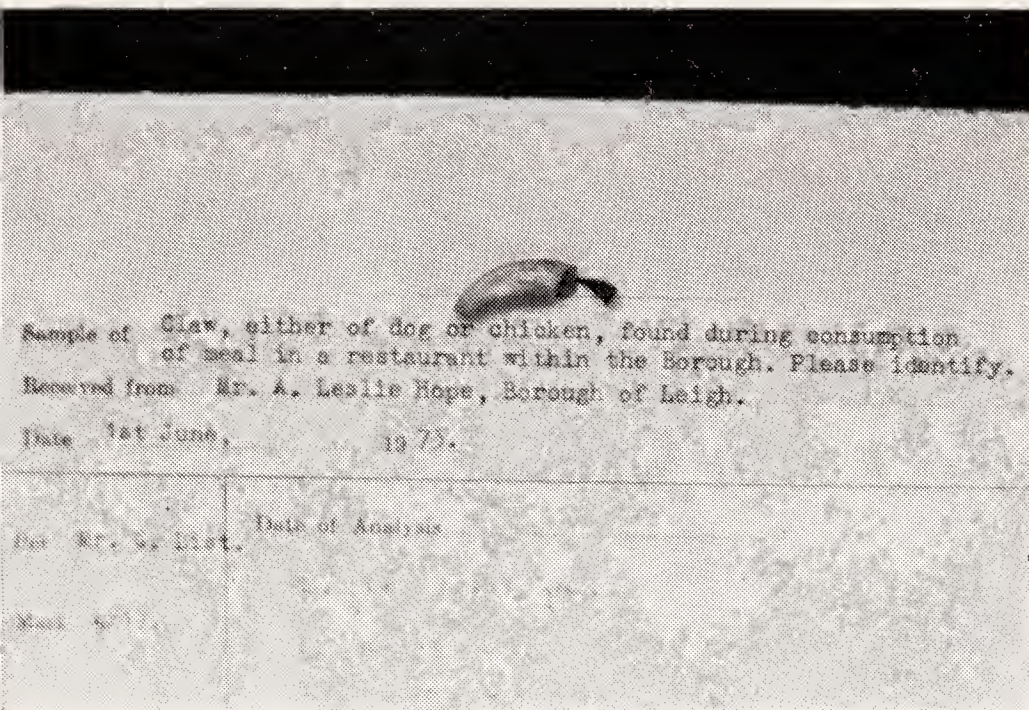 Sample of Claw, either of dog or chicken, found during consumption
of meal in a restaurant within the Borough. Please identify.
Received from Mr. A. Leslie Hope, Borough of Leigh.
Date 1st June, 1973.
Date of Analysis
Per Mr. S. Dist.
Mark